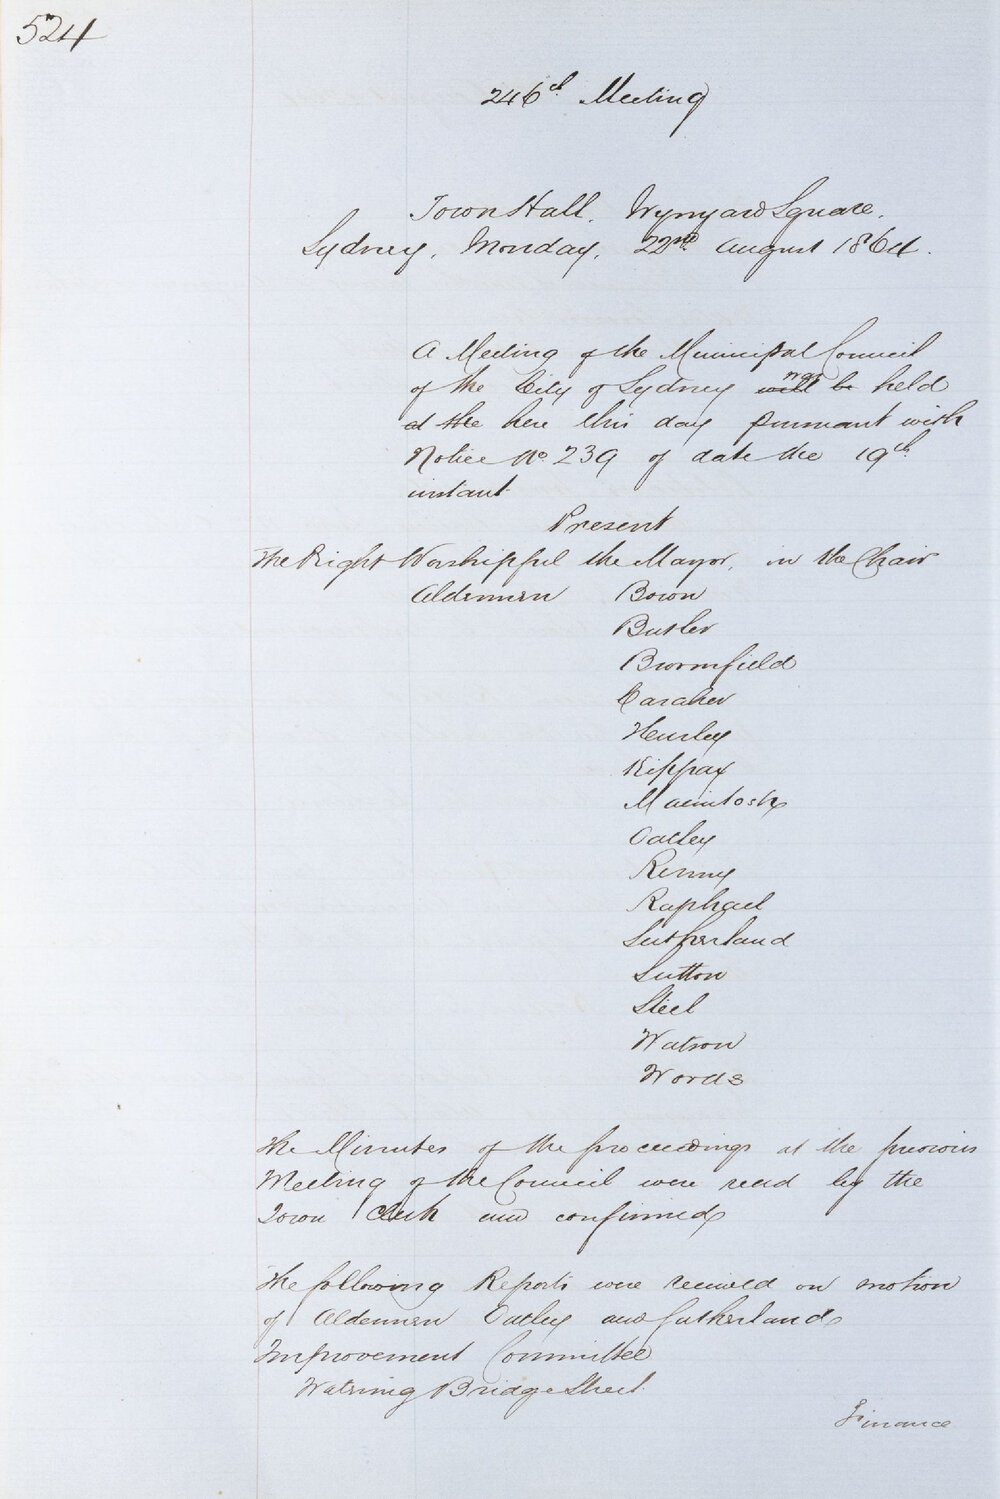 524
246th Meeting
Town Hall. Wynyard Square.
Sydney, Monday, 22nd August 1864.
A Meeting of the Municipal Council
of the City of Sydney will be was held
at the here this day pursuant with
Notice No. 239 of date the 19th
instant
Present
The Right Worshipful the Mayor, in the Chair
Aldermen Bown
Butler
Broomfield
Caraher
Hurley
Kippax
Macintosh
Oatley
Renny
Raphael
Sutherland
Sutton
Steel
Watson
Woods
The Minutes of the proceedings at the previous
Meeting of the Council were read by the
Town Clerk and confirmed
The following Reports were received on motion
of Aldermen Oatley and Sutherland
Improvement Committee
Watering Bridge Street.
Finance